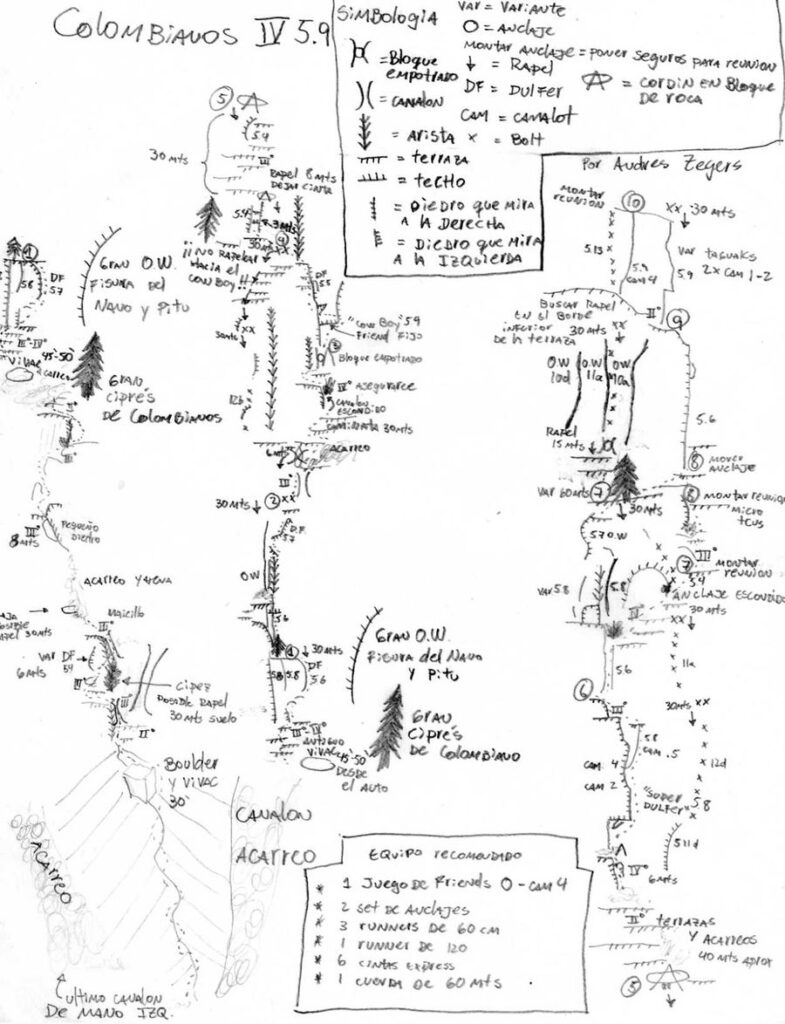 COLOMBIANOS IV 5.9
SIMBOLOGIA
VAR = VARIANTE
O = ANCLAJE
MONTAR ANCLAJE = PONER SEGUROS PARA REUNION
↓ = RAPEL
DF = DULFER
= CORDIN EN BLOQUE
DE ROCA
CAM = CAMALOT
x = BOLT
= BLOQUE
EMPOTRADO
= CANALON
= ARISTA
= TERRAZA
= TECHO
= DIEDRO QUE MIRA
A LA DERECHA
= DIEDRO QUE MIRA
A LA IZQUIERDA
POR ANDRES ZEGERS
1
5.8
DF
5.7
III°-IV°
VIVAC
45-50
GRAN O.W.
FIGURA DEL
NANO Y PITU
GRAN
CIPRÉS
DE COLOMBIANOS
III°
8 MTS
PEQUEÑO
DIEDRO
ACARREO Y ARENA
MAICILLO
POSIBLE
RAPEL 30 MTS
III°
VAR DF
5.4
6 MTS
II°
CIPRES
POSIBLE RAPEL
30 MTS SUELO
III°
II°
BOULDER
Y VIVAC
30°
ACARREO
CANALON
ACARREO
ULTIMO CANALON
DE MANO IZQ.
5
5.4
30 MTS
III°
RAPEL 8 MTS
DEJAR CINTA
5.4
4
¡¡NO RAPELAR
HACIA EL
COWBOY!!
DF
5.5
XX
30 MTS
"COW BOY" 5.9
FRIEND FIJO
3
BLOQUE EMPOTRADO
12b
IV° ASEGURARCE
CANALON
ESCONDIDO
CAMINATA 30 MTS
ACARREO
6 MTS
III°
2 XX
30 MTS
D.F.
5.7
O.W
5.6
1
30 MTS
5.8
5.8
DF
5.6
III°
ANTIGUO
VIVAC
45-50
DESDE
EL AUTO
GRAN O.W.
FIGURA DEL NANO
Y PITU
GRAN
CIPRÉS
DE COLOMBIANO
MONTAR
REUNION
10
XX 30 MTS
5.13
5.9
CAM 4
VAR TAGUAKS
5.9 2x CAM 1-2
BUSCAR RAPEL
EN EL BORDE
INFERIOR
DE LA TERRAZA
30 MTS
XX
II°
9
O.W
10d
O.W
11a
O.W
10a
5.6
RAPEL
15 MTS
8 MOVER
ANCLAJE
VAR 60 MTS
7
30 MTS
8 MONTAR REUNION
MICRO
TCUS
5.7 O.W
III°
7 MONTAR
REUNION
VAR 5.8
5.8
5.4
ANCLAJE ESCONDIDO
30 MTS
XX
IV
5.6
11a
6
III°
30 MTS XX
5.8
CAM .5
CAM 4
CAM 2
12d
"SUPER
DULFER"
5.8
5.11d
IV°
6 MTS
II°
TERRAZAS
Y ACARREOS
40 MTS APROX
5
EQUIPO RECOMENDADO
* 1 JUEGO DE FRIENDS 0 - CAM 4
* 2 SET DE ANCLAJES
* 3 RUNNERS DE 60 CM
* 1 RUNNER DE 120
* 6 CINTAS EXPRESS
* 1 CUERDA DE 60 MTS